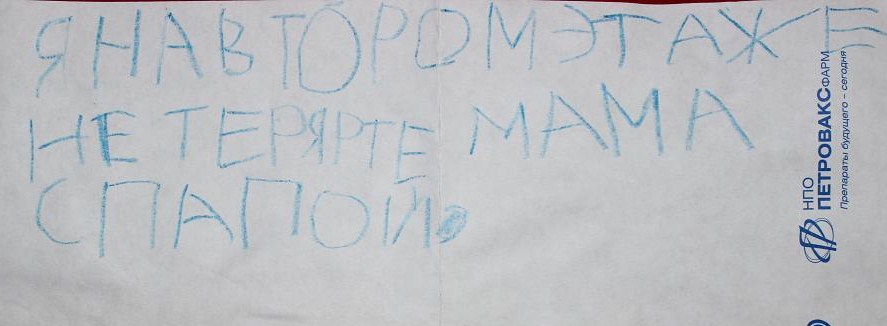 Я НА ВТОРОМ ЭТАЖЕ
НЕ ТЕРЯРТЕ МАМА
С ПАПОЙ
НПО
ПЕТРОВАКС ФАРМ
Препараты будущего – сегодня